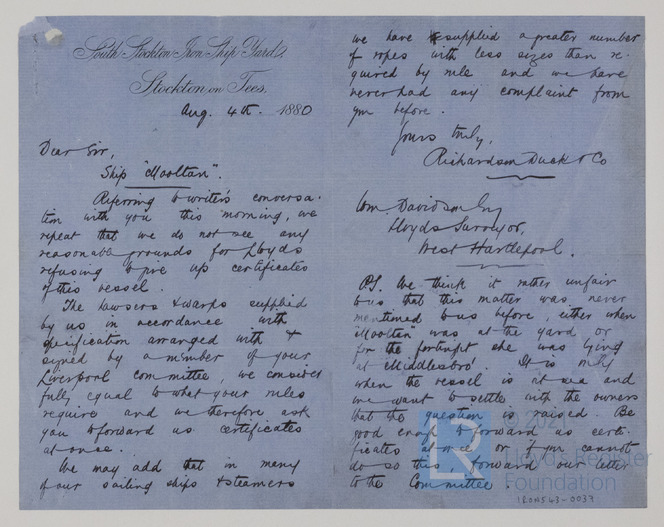 South Stockton Iron Ship Yard.
Stockton on Tees,
Aug. 4th. 1880
Dear Sir,
Ship "Mooltan".
Referring to writer's conversa-
tion with you this morning, we
repeat that we do not see any
reasonable grounds for Lloyds
refusing to give up certificates
of this vessel.
The hawsers & warps supplied
by us in accordance with
specification arranged with &
signed by a member of your
Liverpool committee, we consider
fully equal to what your rules
require and we therefore ask
you to forward us certificates
at once.
We may add that in many
of our sailing ships & steamers
we have supplied a greater number
of ropes with less sizes than re-
quired by rule and we have
never had any complaint from
you before.
Yours truly,
Richardson Duck & Co
Wm. Davidson Esq
Lloyds Surveyor,
West Hartlepool.
PS. We think it rather unfair
to us that this matter was never
mentioned to us before, either when
"Mooltan" was at the yard or
for the fortnight she was lying
at Middlesbro'. It is only
when the vessel is at sea and
we want to settle with the owners
that the question is raised. Be
good enof to forward us certi-
ficates at once or if you cannot
do so this forward our letter
to the Committee.
© 202
Lloyd's Register
Foundation
IRON543-0033